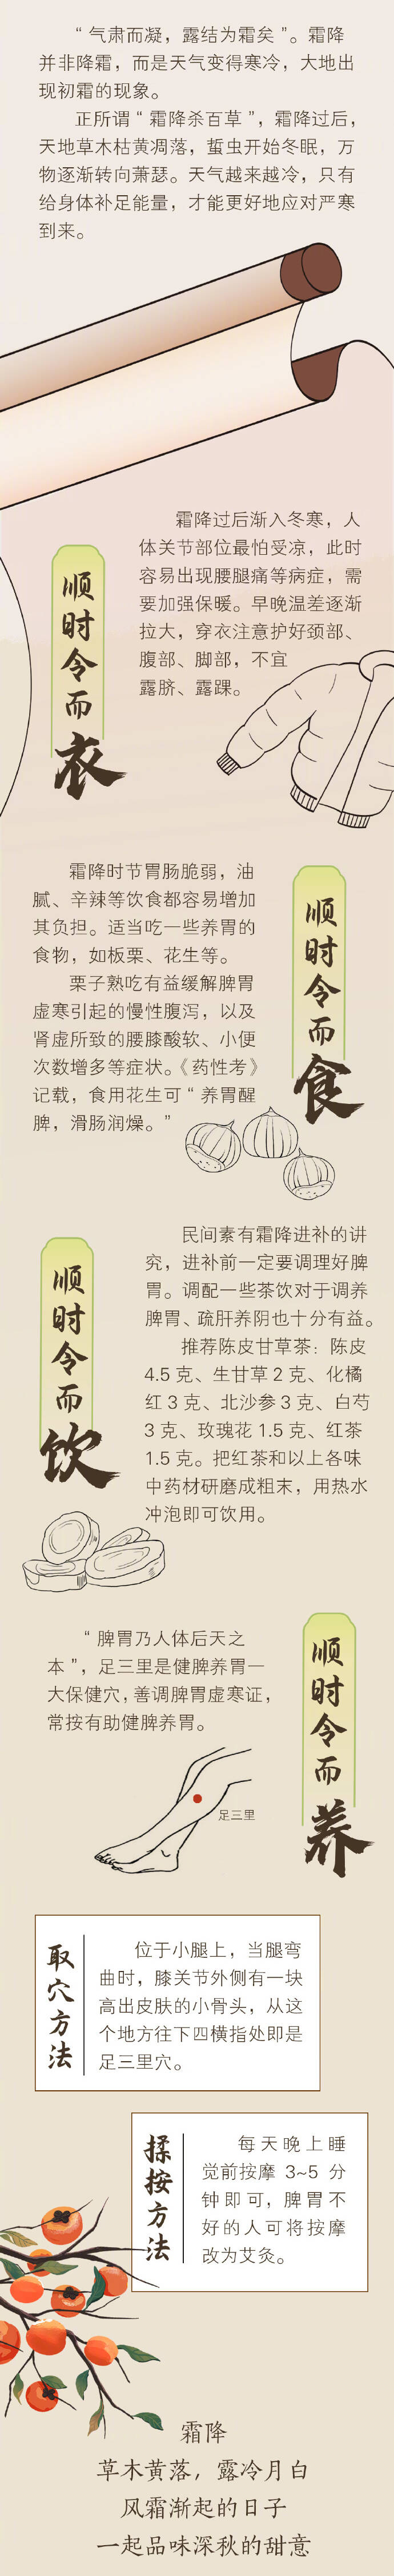 “气肃而凝，露结为霜矣”。霜降
并非降霜，而是天气变得寒冷，大地出
现初霜的现象。
正所谓“霜降杀百草”，霜降过后，
天地草木枯黄凋落，蜇虫开始冬眠，万
物逐渐转向萧瑟。天气越来越冷，只有
给身体补足能量，才能更好地应对严寒
到来。
顺时令而衣
霜降过后渐入冬寒，人
体关节部位最怕受凉，此时
容易出现腰腿痛等病症，需
要加强保暖。早晚温差逐渐
拉大，穿衣注意护好颈部、
腹部、脚部，不宜
露脐、露踝。
顺时令而食
霜降时节胃肠脆弱，油
腻、辛辣等饮食都容易增加
其负担。适当吃一些养胃的
食物，如板栗、花生等。
栗子熟吃有益缓解脾胃
虚寒引起的慢性腹泻，以及
肾虚所致的腰膝酸软、小便
次数增多等症状。《药性考》
记载，食用花生可“养胃醒
脾，滑肠润燥。”
顺时令而饮
民间素有霜降进补的讲
究，进补前一定要调理好脾
胃。调配一些茶饮对于调养
脾胃、疏肝养阴也十分有益。
推荐陈皮甘草茶：陈皮
4.5 克、生甘草 2 克、化橘
红 3 克、北沙参 3 克、白芍
3 克、玫瑰花 1.5 克、红茶
1.5 克。把红茶和以上各味
中药材研磨成粗末，用热水
冲泡即可饮用。
顺时令而养
“脾胃乃人体后天之
本”，足三里是健脾养胃一
大保健穴，善调脾胃虚寒证，
常按有助健脾养胃。
足三里
取穴方法
位于小腿上，当腿弯
曲时，膝关节外侧有一块
高出皮肤的小骨头，从这
个地方往下四横指处即是
足三里穴。
揉按方法
每天晚上睡
觉前按摩 3~5 分
钟即可，脾胃不
好的人可将按摩
改为艾灸。
霜降
草木黄落，露冷月白
风霜渐起的日子
一起品味深秋的甜意